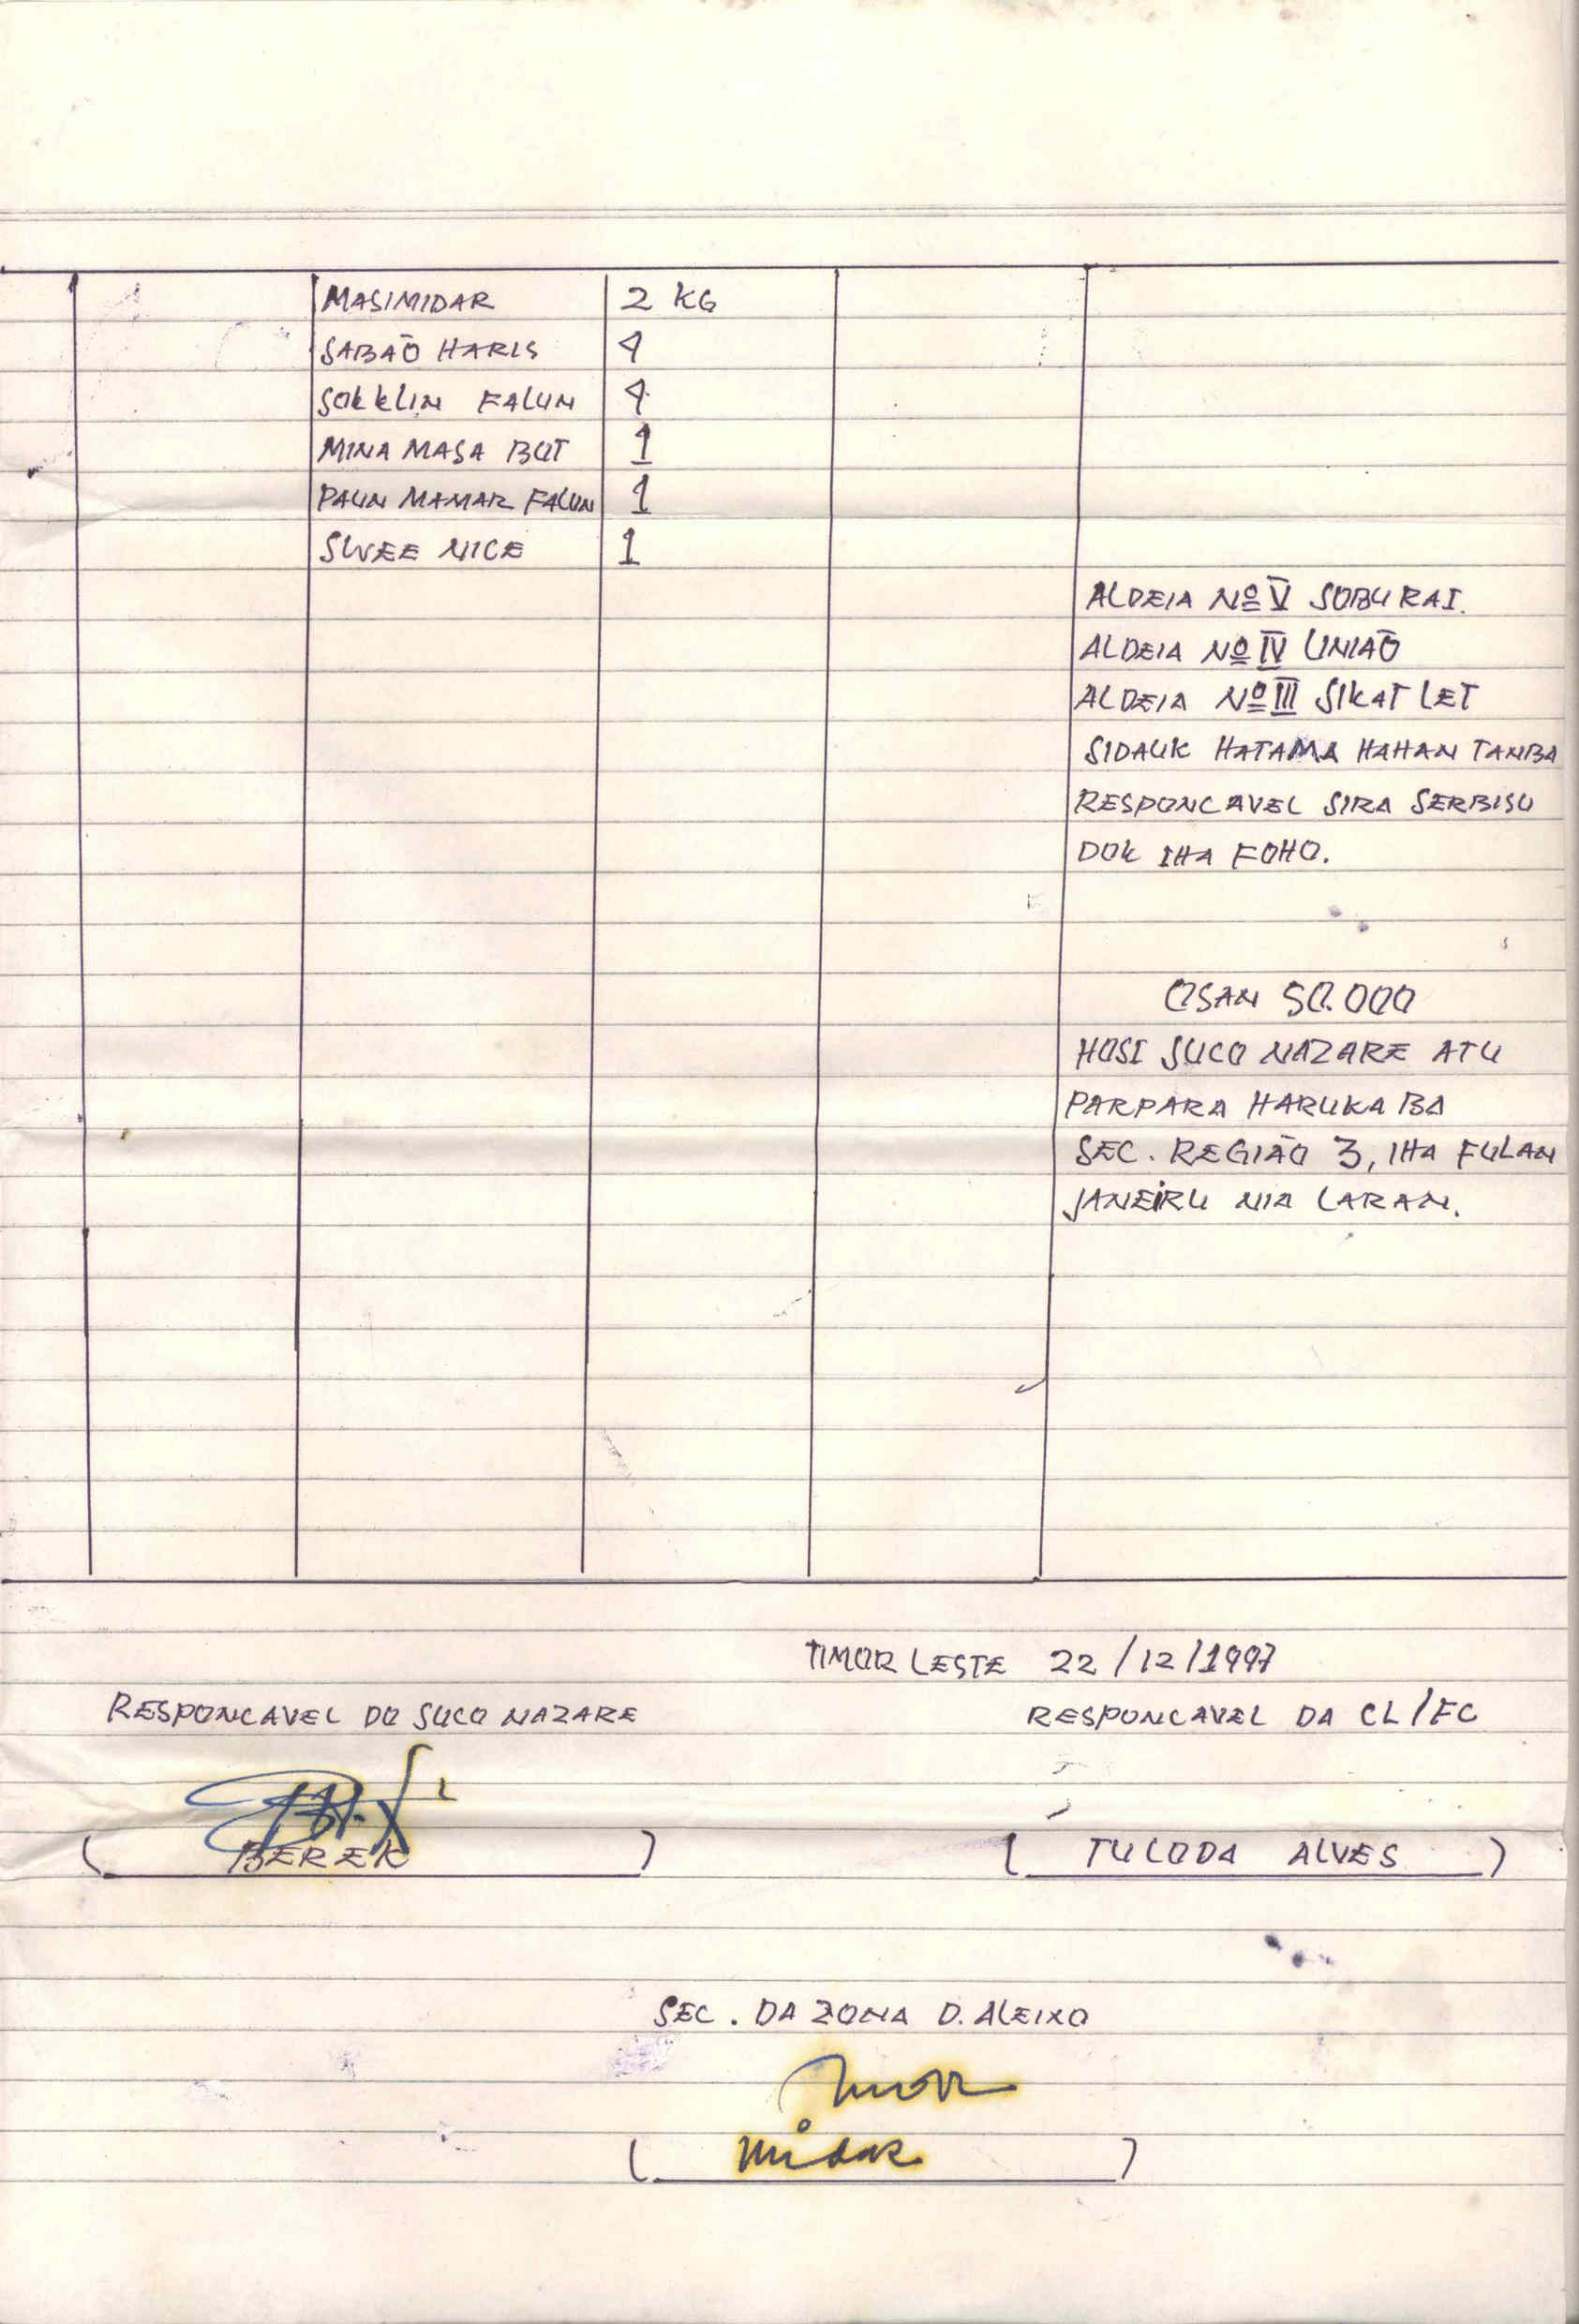 MASIMIDAR 2 KG
SABAÕ HARIS 4
SOKKLIN FALUN 4
MINA MASA BOT 1
PAUN MAMAR FALUN 1
SUVEE NICE 1
ALDEIA Nº V SOBU RAI.
ALDEIA Nº IV UNIAÕ
ALDEIA Nº III SIKAT LET
SIDAUK HATAMA HAHAN TANBA
RESPONCAVEL SIRA SERBISU
DOK IHA FOHO.
OSAN 50.000
HOSI SUCO NAZARE ATU
PARPARA HARUKA BA
SEC. REGIÃO 3, IHA FULAN
JANEIRU NIA LARAN.
TIMOR LESTE 22/12/1997
RESPONCAVEL DO SUCO NAZARE RESPONCAVEL DA CL/FC
( BEREK ) ( TULODA ALVES )
SEC. DA ZONA D. ALEIXO